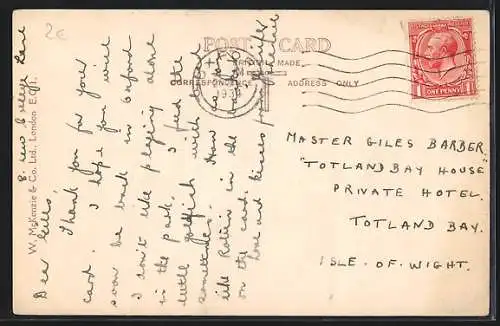 2€
POST CARD
BRITISH MADE
CORRESPONDENCE
ADDRESS ONLY
1933
POSTAGE REVENUE
ONE PENNY
W. McKenzie & Co. Ltd., London E.C.1.
8. New College Lane
Dear Giles.
Thank you for your
card. I hope you will
soon be back in Oxford
I don't like playing alone
in the park. I feed the
little goldfish with bread
sometimes. How is
like Robins in the
on the card.
love and kisses from
MASTER GILES BARBER
"TOTLAND BAY HOUSE"
PRIVATE HOTEL.
TOTLAND BAY.
ISLE. OF. WIGHT.